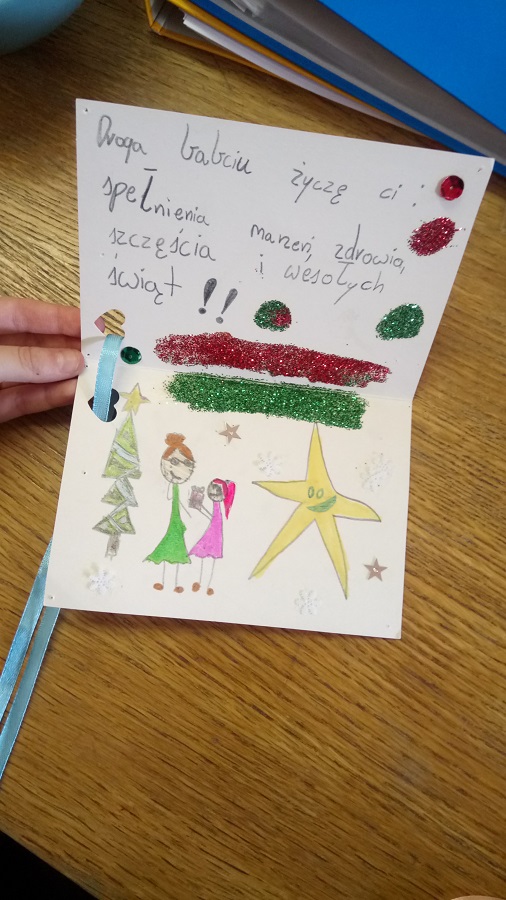 Droga babciu życzę ci :
spełnienia marzeń, zdrowia,
szczęścia i wesołych
świąt !!